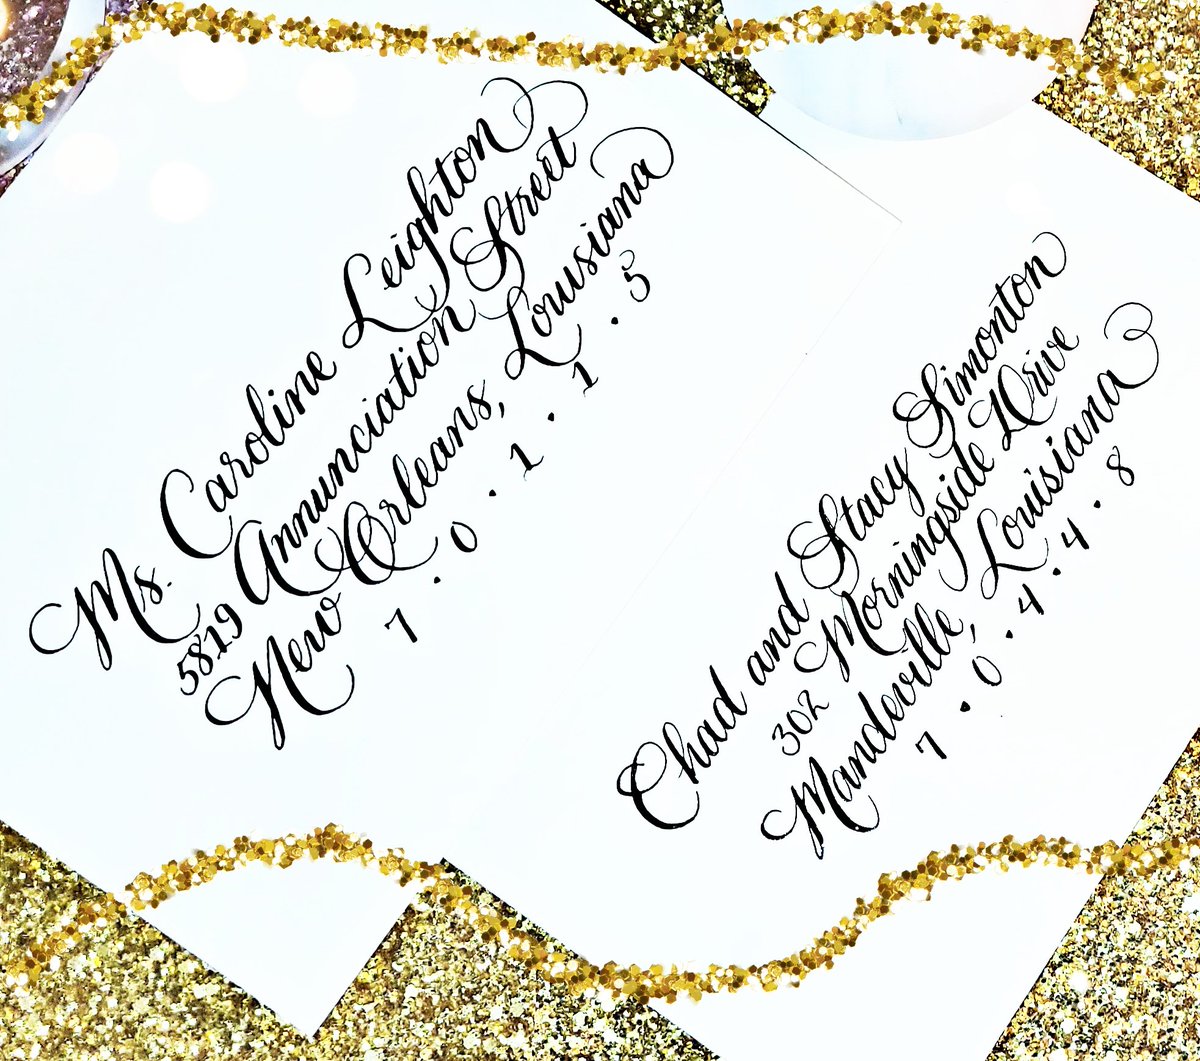 Ms. Caroline Leighton
5819 Annunciation Street
New Orleans, Lousiana
7 . 0 . 1 . 1 . 5
Chad and Stacy Simonton
302 Morningside Drive
Mandeville, Louisiana
7 . 0 . 4 . 4 . 8